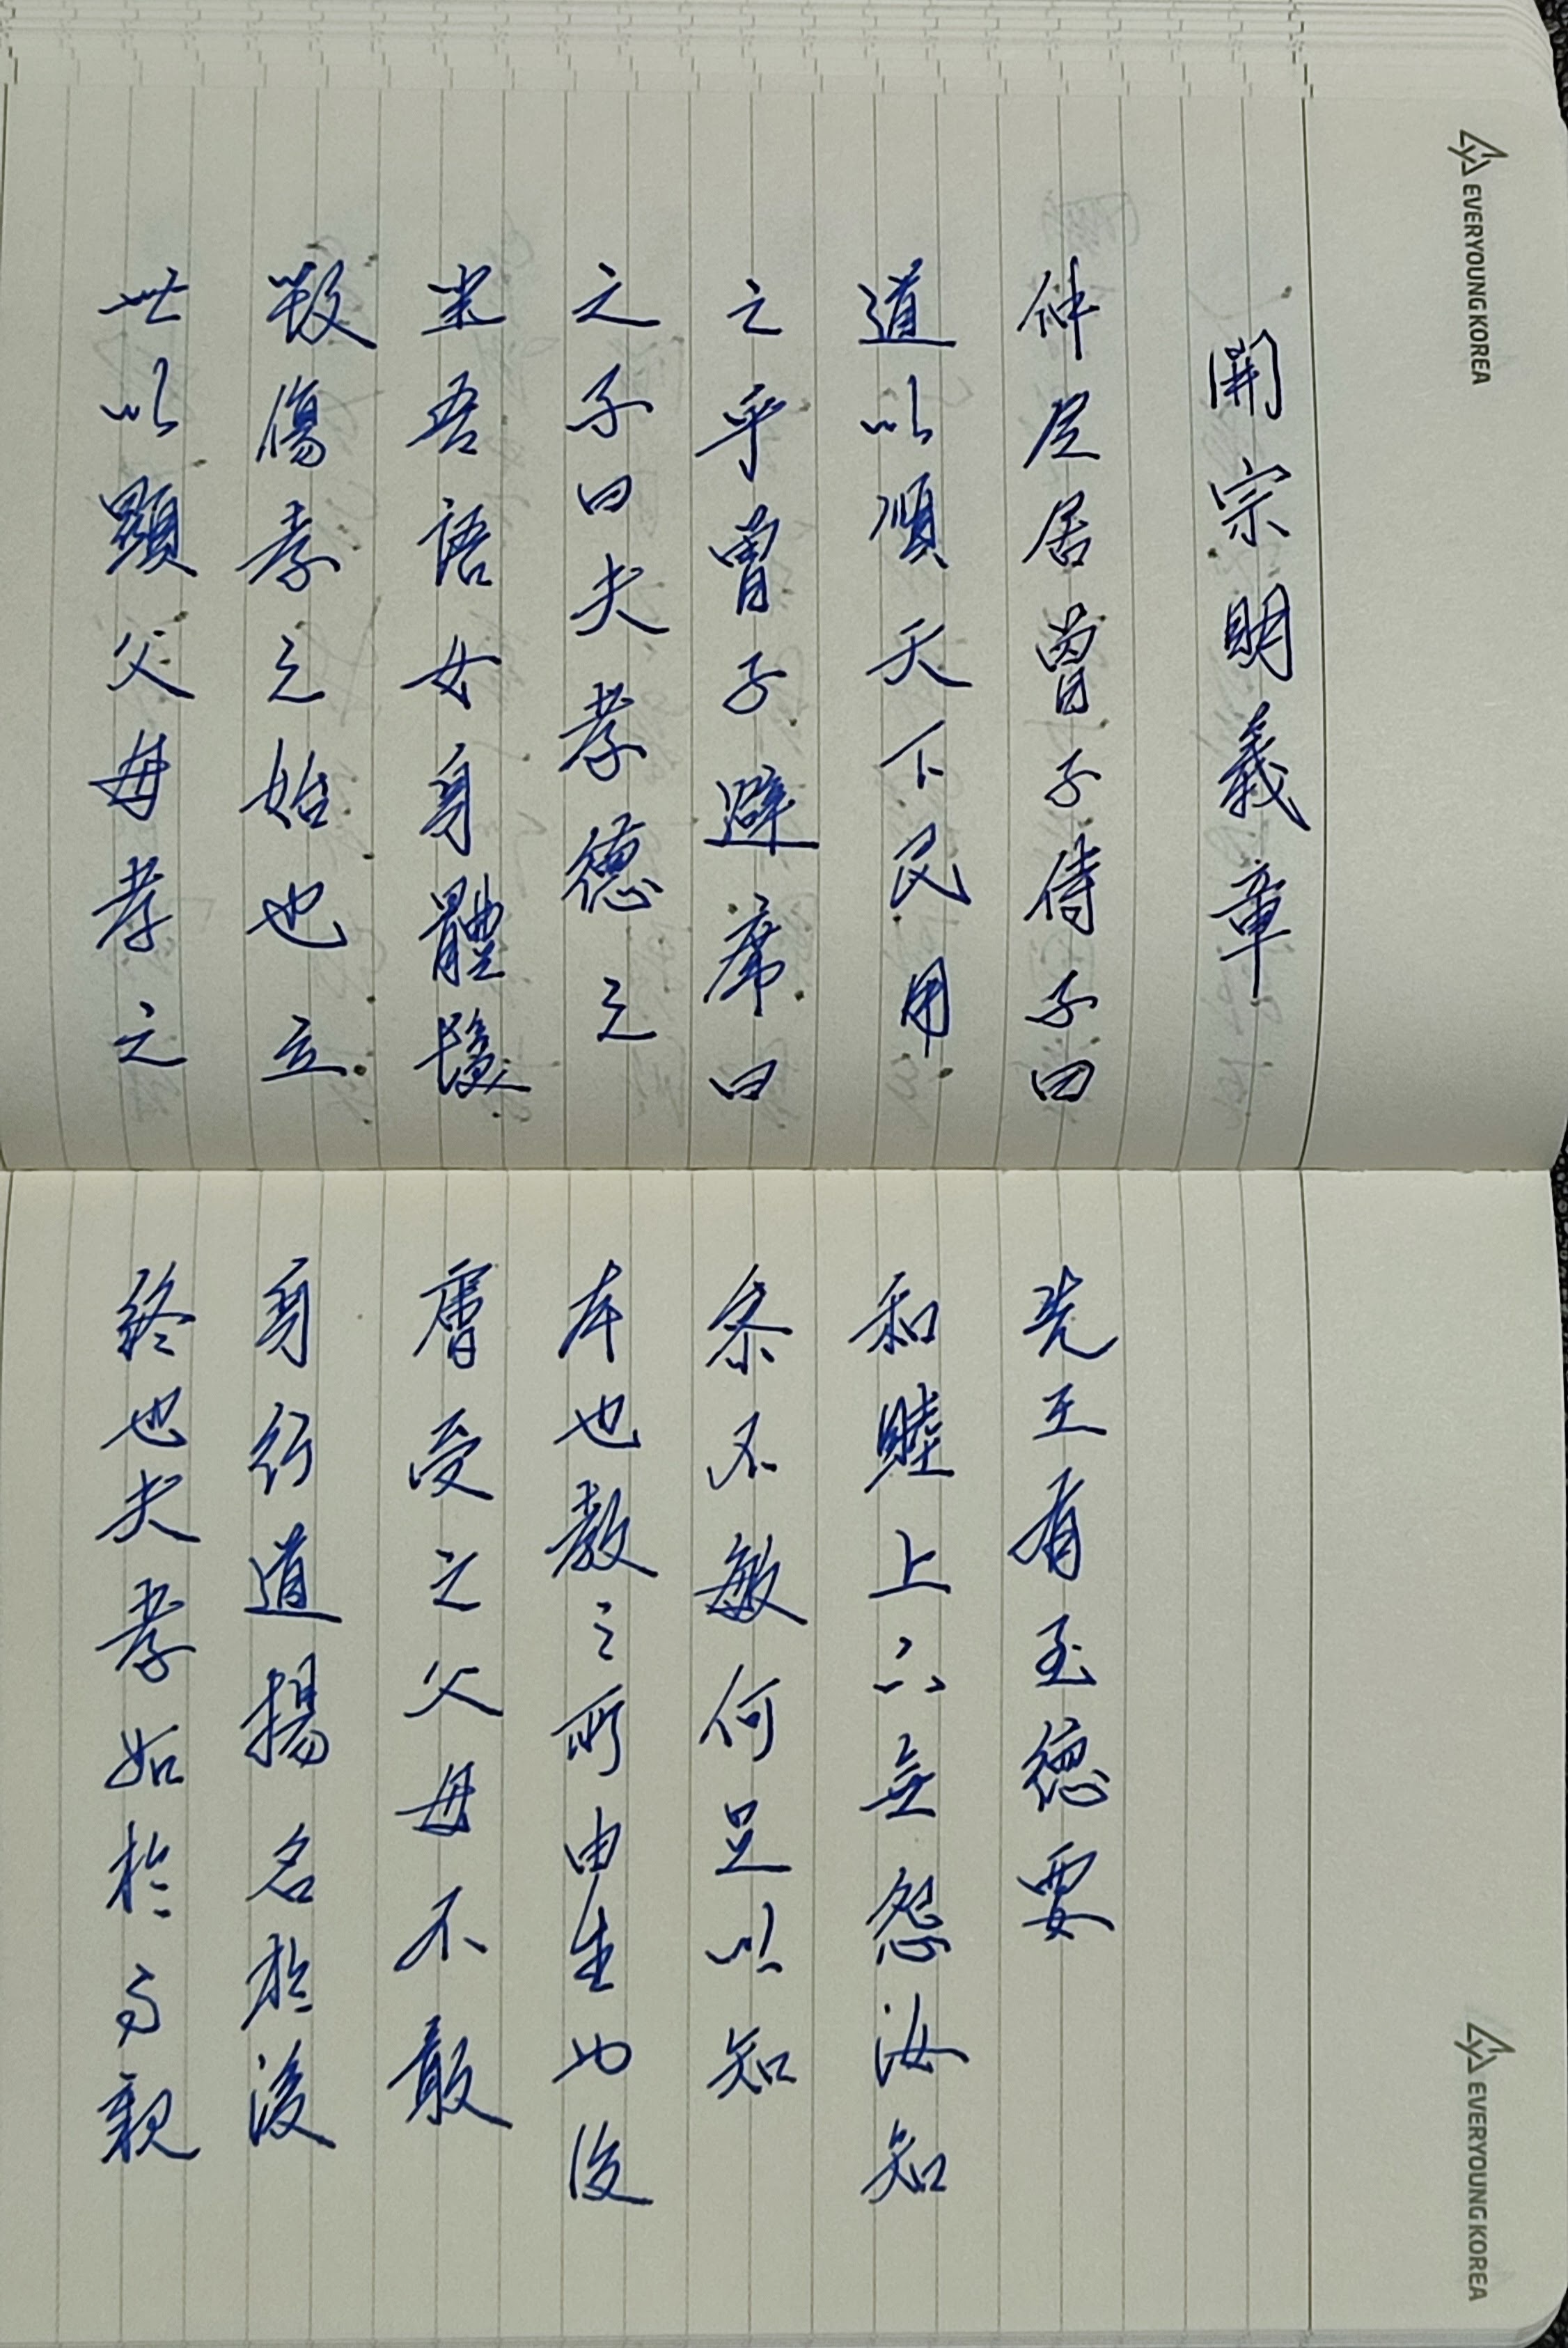 開宗明義章
仲尼居曾子侍子曰先王有至德要
道以順天下民用和睦上下無怨汝知
之乎曾子避席曰參不敏何足以知
之子曰夫孝德之本也教之所由生也復
坐吾語女身體髮膚受之父母不敢
毀傷孝之始也立身行道揚名於後
世以顯父母孝之終也夫孝如於事親
EVERYOUNG KOREA
EVERYOUNG KOREA